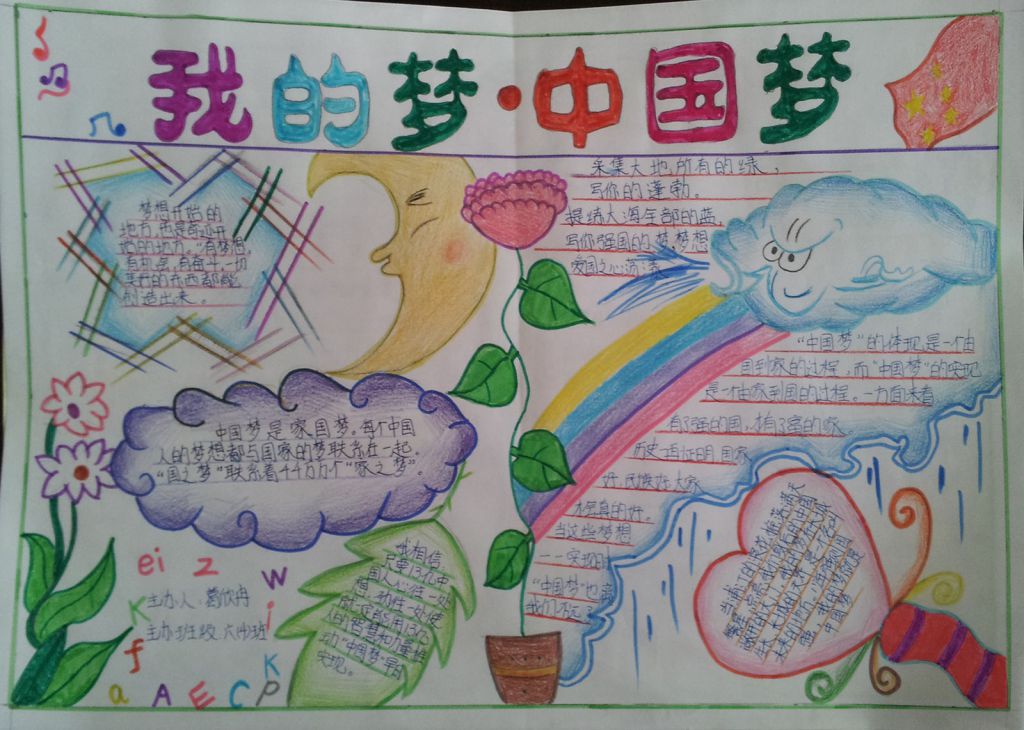 我的梦·中国梦
梦想开始的
地方,也是奇迹开
始的地方。“有梦想,
有机会,有奋斗,一切
美好的东西都能
创造出来。
采集大地所有的绿,
写你的蓬勃。
提炼大海全部的蓝,
写你强国的梦,梦想
爱国之心荡漾
“中国梦”的体现是一个由
国到家的过程,而“中国梦”的实现
是一个由家到国的过程。一方面来看
有了强的国,才有了富的家。
历史证明,国家
好,民族好,大家
才会真的好。
当这些梦想
一一实现时
“中国梦”也离
我们不远
中国梦是家国梦。每个中国
人的梦想都与国家的梦联系在一起。
“国之梦”联系着44万万个“家之梦”。
我相信,
只要13亿中
国人心往一处
想,劲往一处使,
就一定能用13亿
人的智慧和力量推
动“中国梦”早日
实现。
ei z w
主办人:葛欣冉
主办班级:六(4)班
K i
f K
a A E C P